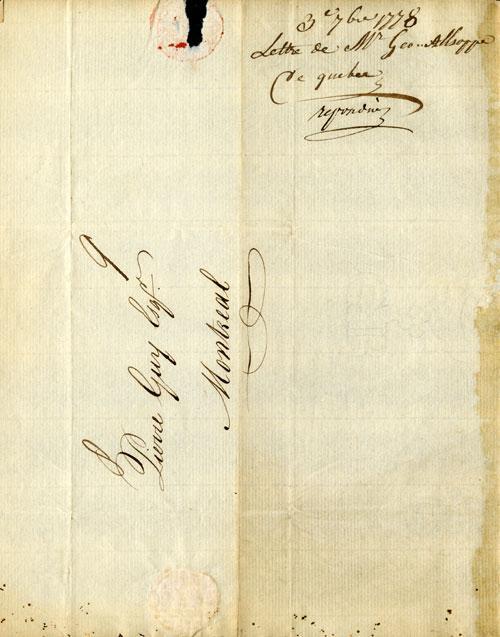 3e 7bre 1778
Lettre de Mr. Geo. Allsopp
De quebec
repondue
9
Pierre Guy Esqr.
Montreal